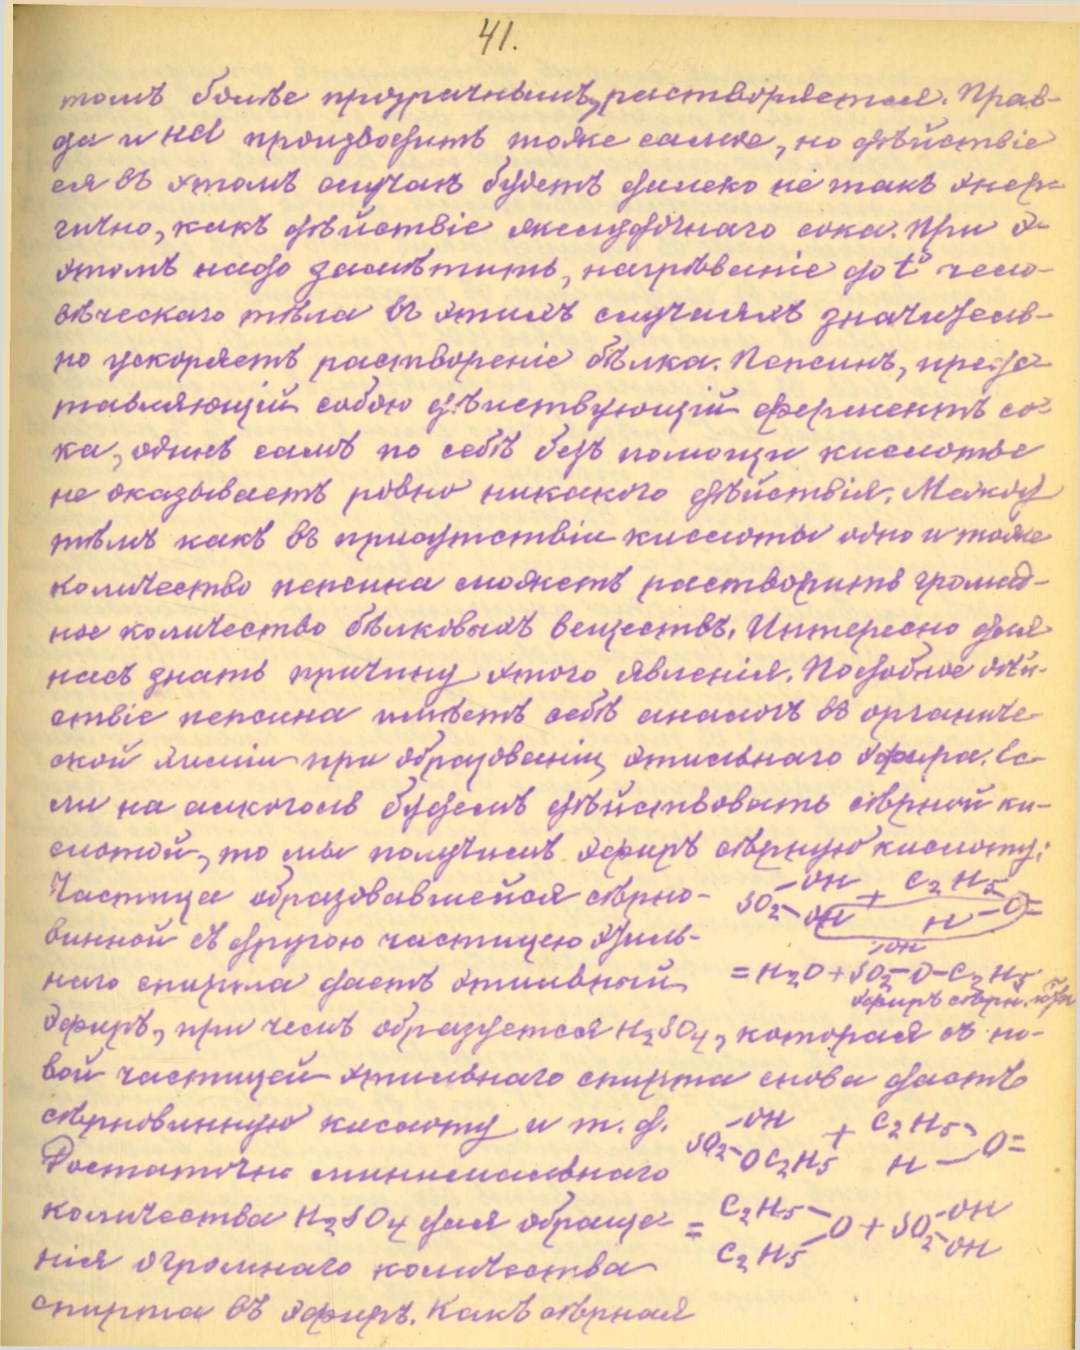 41.
томъ болѣе прозрачнымъ, растворяется. Прав-
да и HCl производитъ тоже самое, но дѣйствіе
ея въ этомъ случаѣ будетъ далеко не такъ энер-
гично, какъ дѣйствіе желудочнаго сока. При э-
этомъ надо замѣтить, нагрѣваніе до t° чело-
вѣческаго тѣла въ этихъ случаяхъ значитель-
но ускоряетъ раствореніе бѣлка. Пепсинъ, предс-
тавляющій собою дѣйствующій ферментъ со-
ка, одинъ самъ по себѣ безъ помощи кислоты
не оказываетъ ровно никакого дѣйствія. Между
тѣмъ какъ въ присутствіи кислоты одно и тоже
количество пепсина сможетъ растворить громад-
ное количество бѣлковыхъ веществъ. Интересно для
насъ знать причину этого явленія. Подобное дѣй-
ствіе пепсина имѣетъ себѣ аналогъ въ органиче-
ской химіи при образованіи этильнаго эфира. Ес-
ли на алкоголь будемъ дѣйствовать сѣрной ки-
слотой, то мы получимъ эфиръ сѣрную кислоту:
Частица образовавшейся сѣрно-
винной съ другою частицею этиль-
наго спирта даетъ этильный
эфиръ, при чемъ образуется H₂SO₄, которая съ но-
вой частицей этильнаго спирта снова даетъ
сѣрновинную кислоту и т. д.
Достаточно минимальнаго
количества H₂SO₄ для обраще-
нія огромнаго количества
спирта въ эфиръ. Какъ сѣрная
SO₂-OH -OH + C₂H₅ H-O=
=H₂O+SO₂-OH -O-C₂H₅
эфиръ сѣрн.
SO₂-OH -OC₂H₅ + C₂H₅ H -O=
= C₂H₅ C₂H₅ -O + SO₂-OH -OH